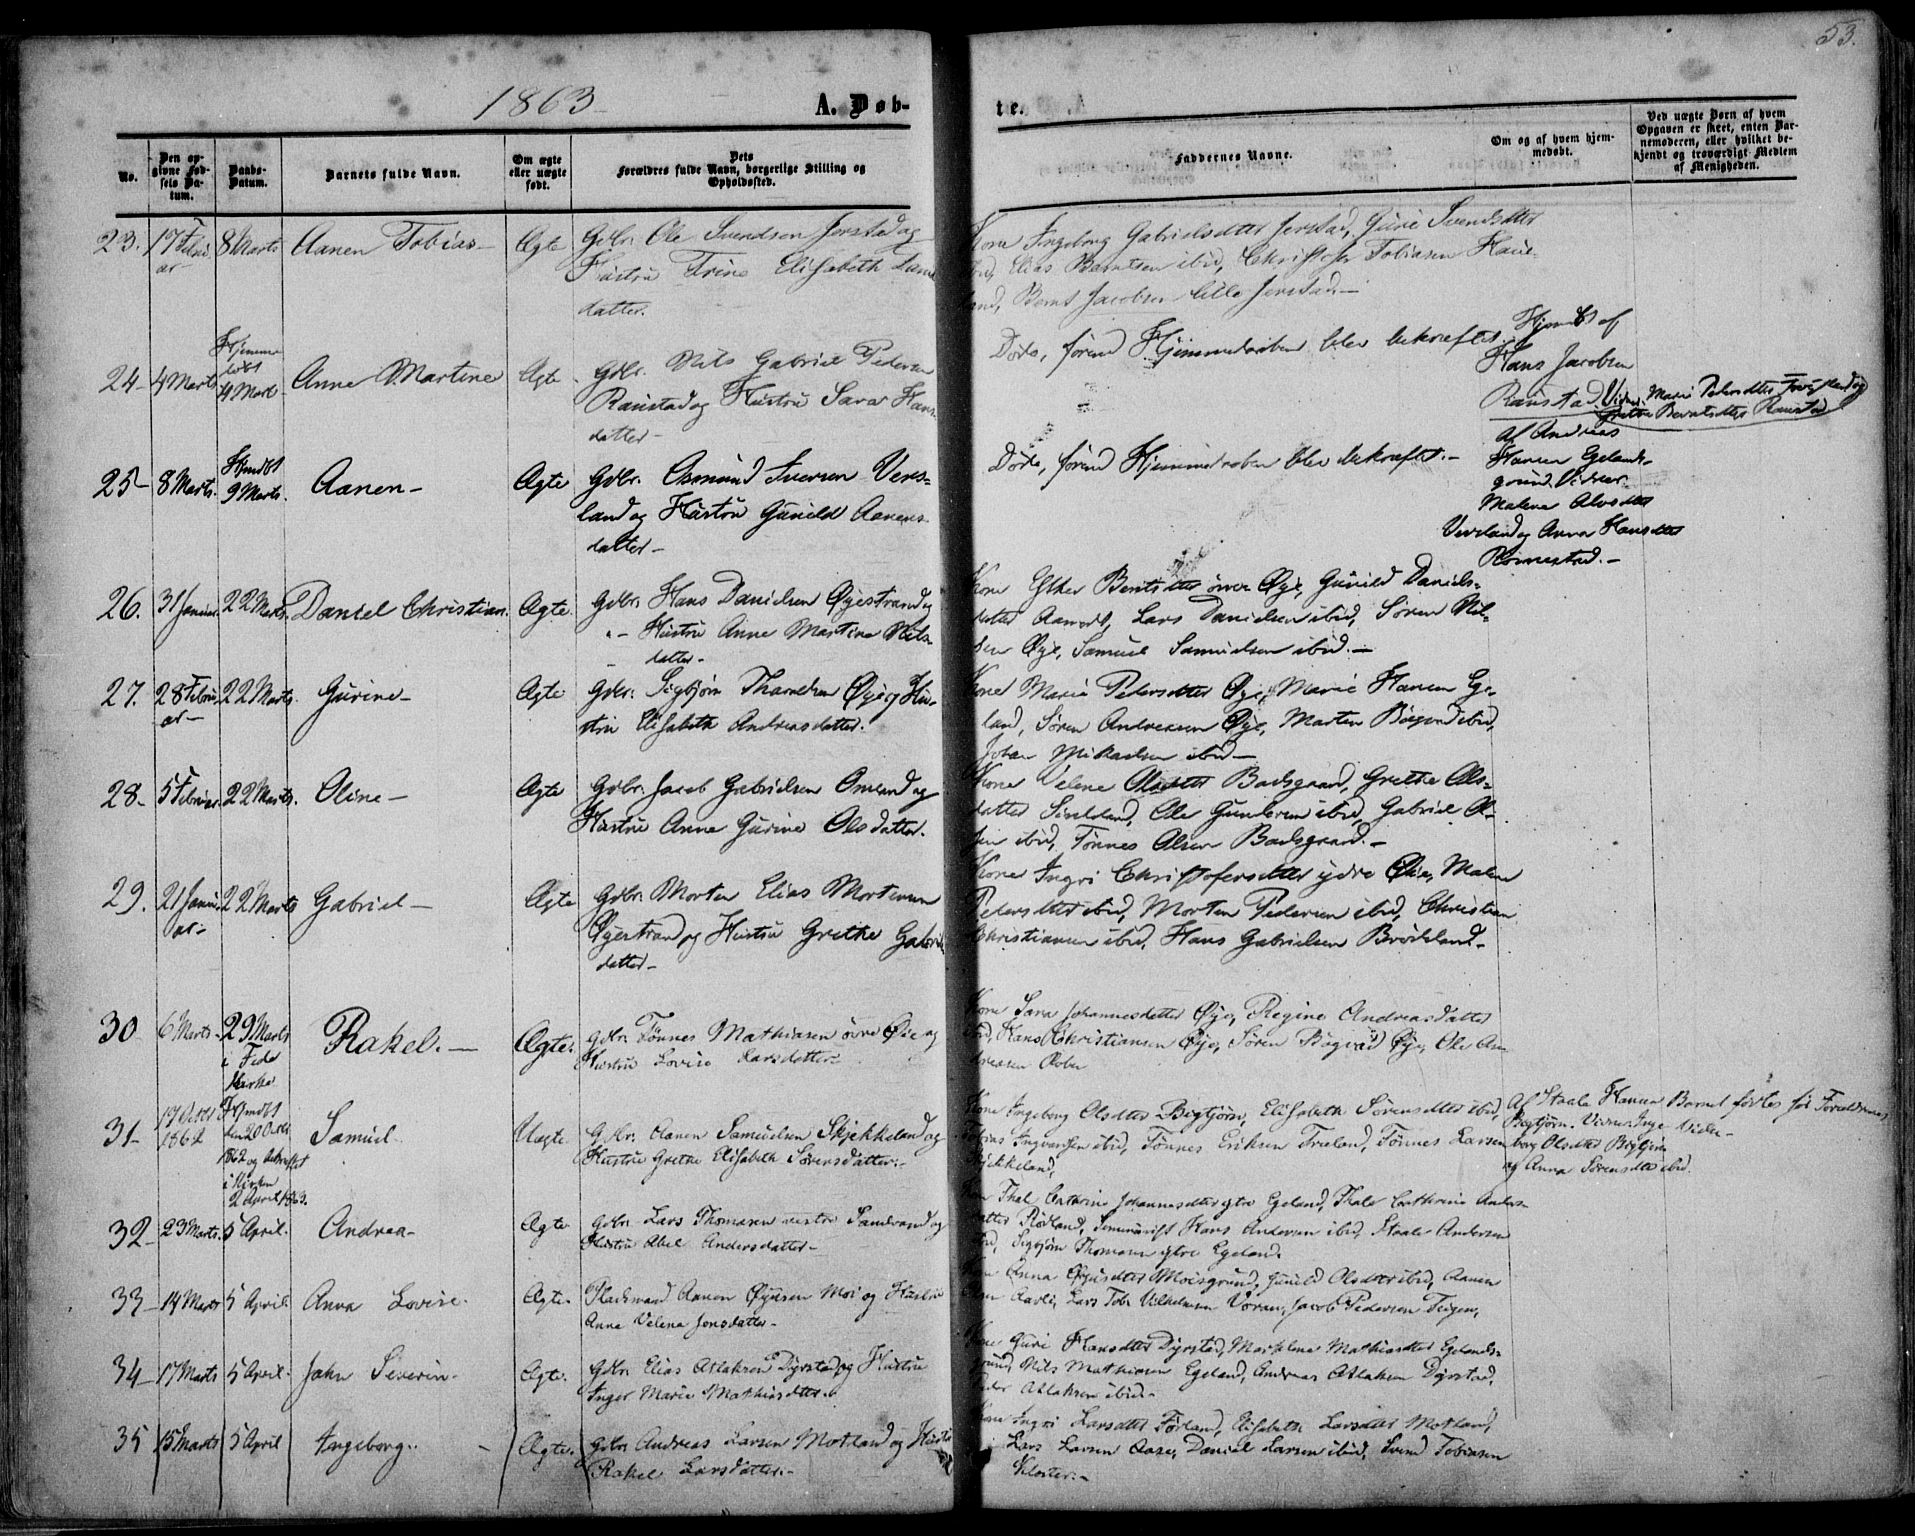 53.
1863
A. Døb-
te.
No.
Den op-
givne Fød-
sels Da-
tum.
Daabs-
Datum.
Barnets fulde Navn.
Om ægte
eller uægte
født.
Dets
Forældres fulde Navn, borgerlige Stilling og
Opholdssted.
Faddernes Navne.
Om og af hvem hjem-
medøbt.
Ved uægte Børn af hvem
Opgaven er skeet, enten Bar-
nemoderen, eller hvilket be-
kjendt og troværdigt Medlem
af Menigheden.
23. 17 Febru
ar
8 Marts Aanen Tobias Ægte Gdbr. Ole Svendsen Jerstad og
Hustru Trine Elisabeth
datter.
Kone Ingeborg Gabrielsdtter Jerstad, Gurie Svendsdtter
ibid, Elias Berntsen ibid, Christofer Tobiasen Haue-
land, Bernt Jacobsen lille Jerstad.
24 4 Marts Hjemme
døbt
4 Marts Anne Martine Ægte Gdbr. Nils Gabriel Pedersen
Raustad og Hustru Sara Hans
datter
Døde, førend Hjemmedaaben blev bekræftet.
Hjemdbt af
Hans Jacobsen
Raustad. Vidner: Marie Pedersdtter
Grethe Berntsdtter Raustad
25 8 Marts. Hjmdbt
9 Marts. Aanen Ægte Gdbr. Osmund Iversen Vers-
land og Hustru Gunild Aanens
datter
Døde, førend Hjemmedaaben blev bekræftet.
Af Andreas
Hansen Egelands-
grund. Vidner
Malene Alvsdtter
Versland og Anna Hansdtter
Romestad.
26. 31 Januar 22 Marts. Daniel Christian. Ægte. Gdbr. Hans Danielsen Øyestrand og
Hustru Anne Martine Nils-
datter
Kone Esther Berntsdtter øvre Øye, Gunild Daniels-
datter Aamodt, Lars Danielsen ibid, Søren Nil-
sen Øye, Samuel Samuelsen ibid.
27. 28 Febru
ar
22 Marts. Gurine Ægte Gdbr. Sigbjørn Thorvdsen Øye og Hu-
stru Elisabeth Andreasdatter.
Kone Marie Pedersdtter Øye, Marie Hansen Ege-
land, Søren Andreasen Øye, Morten Bøgvad ibid,
Johan Mikaelsen ibid
28 5 Februar 22 Marts. Oline Ægte Gdbr. Jacob Gabrielsen Omland og
Hustru Anne Gurine Olsdatter.
Kone Velene Olsdtter Badsgaard, Grethe Ols-
datter Sinland, Ole Gundersen ibid, Gabriel Ol-
sen ibid, Tønnes Olsen Badsgaard.
29. 21 Janu
ar
22 Marts Gabriel Ægte Gdbr. Morten Elias Mortensen
Øyestrand og Hustru Grethe Gabriels
datter
Kone Ingri Christofersdtter ydre Øie, Malene
Pedersdtter ibid, Morten Pedersen ibid, Christian
Christiansen ibid, Hans Gabrielsen Brødsland.
30 6 Marts 29 Marts
i Feda
Kirke
Rakel. Ægte. Gdbr. Tønnes Mathiasen øvre Øie og
Hustru Lovise Larsdatter.
Kone Sara Johannesdatter Øye, Regine Andreasdatter
ibid, Hans Christiansen Øye, Søren Bøgvad Øye, Ole An-
dreasen
31 17 Octbr
1862
Hjmdbt
den 20 Octbr
1862 og bekræftet
i Kirken
2 April 1863.
Samuel Uægte Gdbr. Aanen Samuelsen Skjekkeland og
Hustru Grethe Elisabeth Sørensdatter.
Kone Ingeborg Olsdtter Bigtjørn, Elisabeth Sørensdtter ibid,
Tobias Ingvardsen ibid, Tønnes Eriksen Træland, Tønnes Larsen
Skjekkeland,
Af Staale Hansen
Bigtjørn. Vidner: Inge-
borg Olsdtter Bigtjørn
og Anna Sørensdtter ibid.
32 23 Marts. 5 April. Andrea Ægte Gdbr. Lars Thomasen vestre Sandvand og
Hustru Abel Andersdatter
datter Rødland, Hans Andersen ibid, Staale Andersen
ibid, Sigbjørn Thomasen ytre Egeland.
33 14 Marts 5 April. Anna Lovise. Ægte. Pladsmand Aanen Øyusen Moi og Hustru
Anne Velena Jonsdatter
Kone Anna Øyusdtter Moisgrund, Gunild Olsdtter ibid, Aanen
Lars Tobi Vilhelmsen Voran, Jacob Pedersen Tingen,
34 17 Marts 5 April. John Severin Ægte. Gdbr. Elias Atlaksen Dyrstad og Hustru
Inger Marie Mathiasdtter
Kone Guri Hansdtter Dyrstad, Marthine Mathiasdtter Egelands-
grund, Nils Mathiasen Egeland, Andreas Atlaksen Dyrstad,
Peder Atlaksen ibid.
35 15 Marts 5 April Ingeborg. Ægte. Gdbr Andreas Larsen Motland og Hustru
Rakel Larsdatter.
Kone Ingri Larsdtter Førland, Elisabeth Larsdtter Motland,
Lars Larsen Aase, Daniel Larsen ibid, Svend Tobiasen
Kloster.